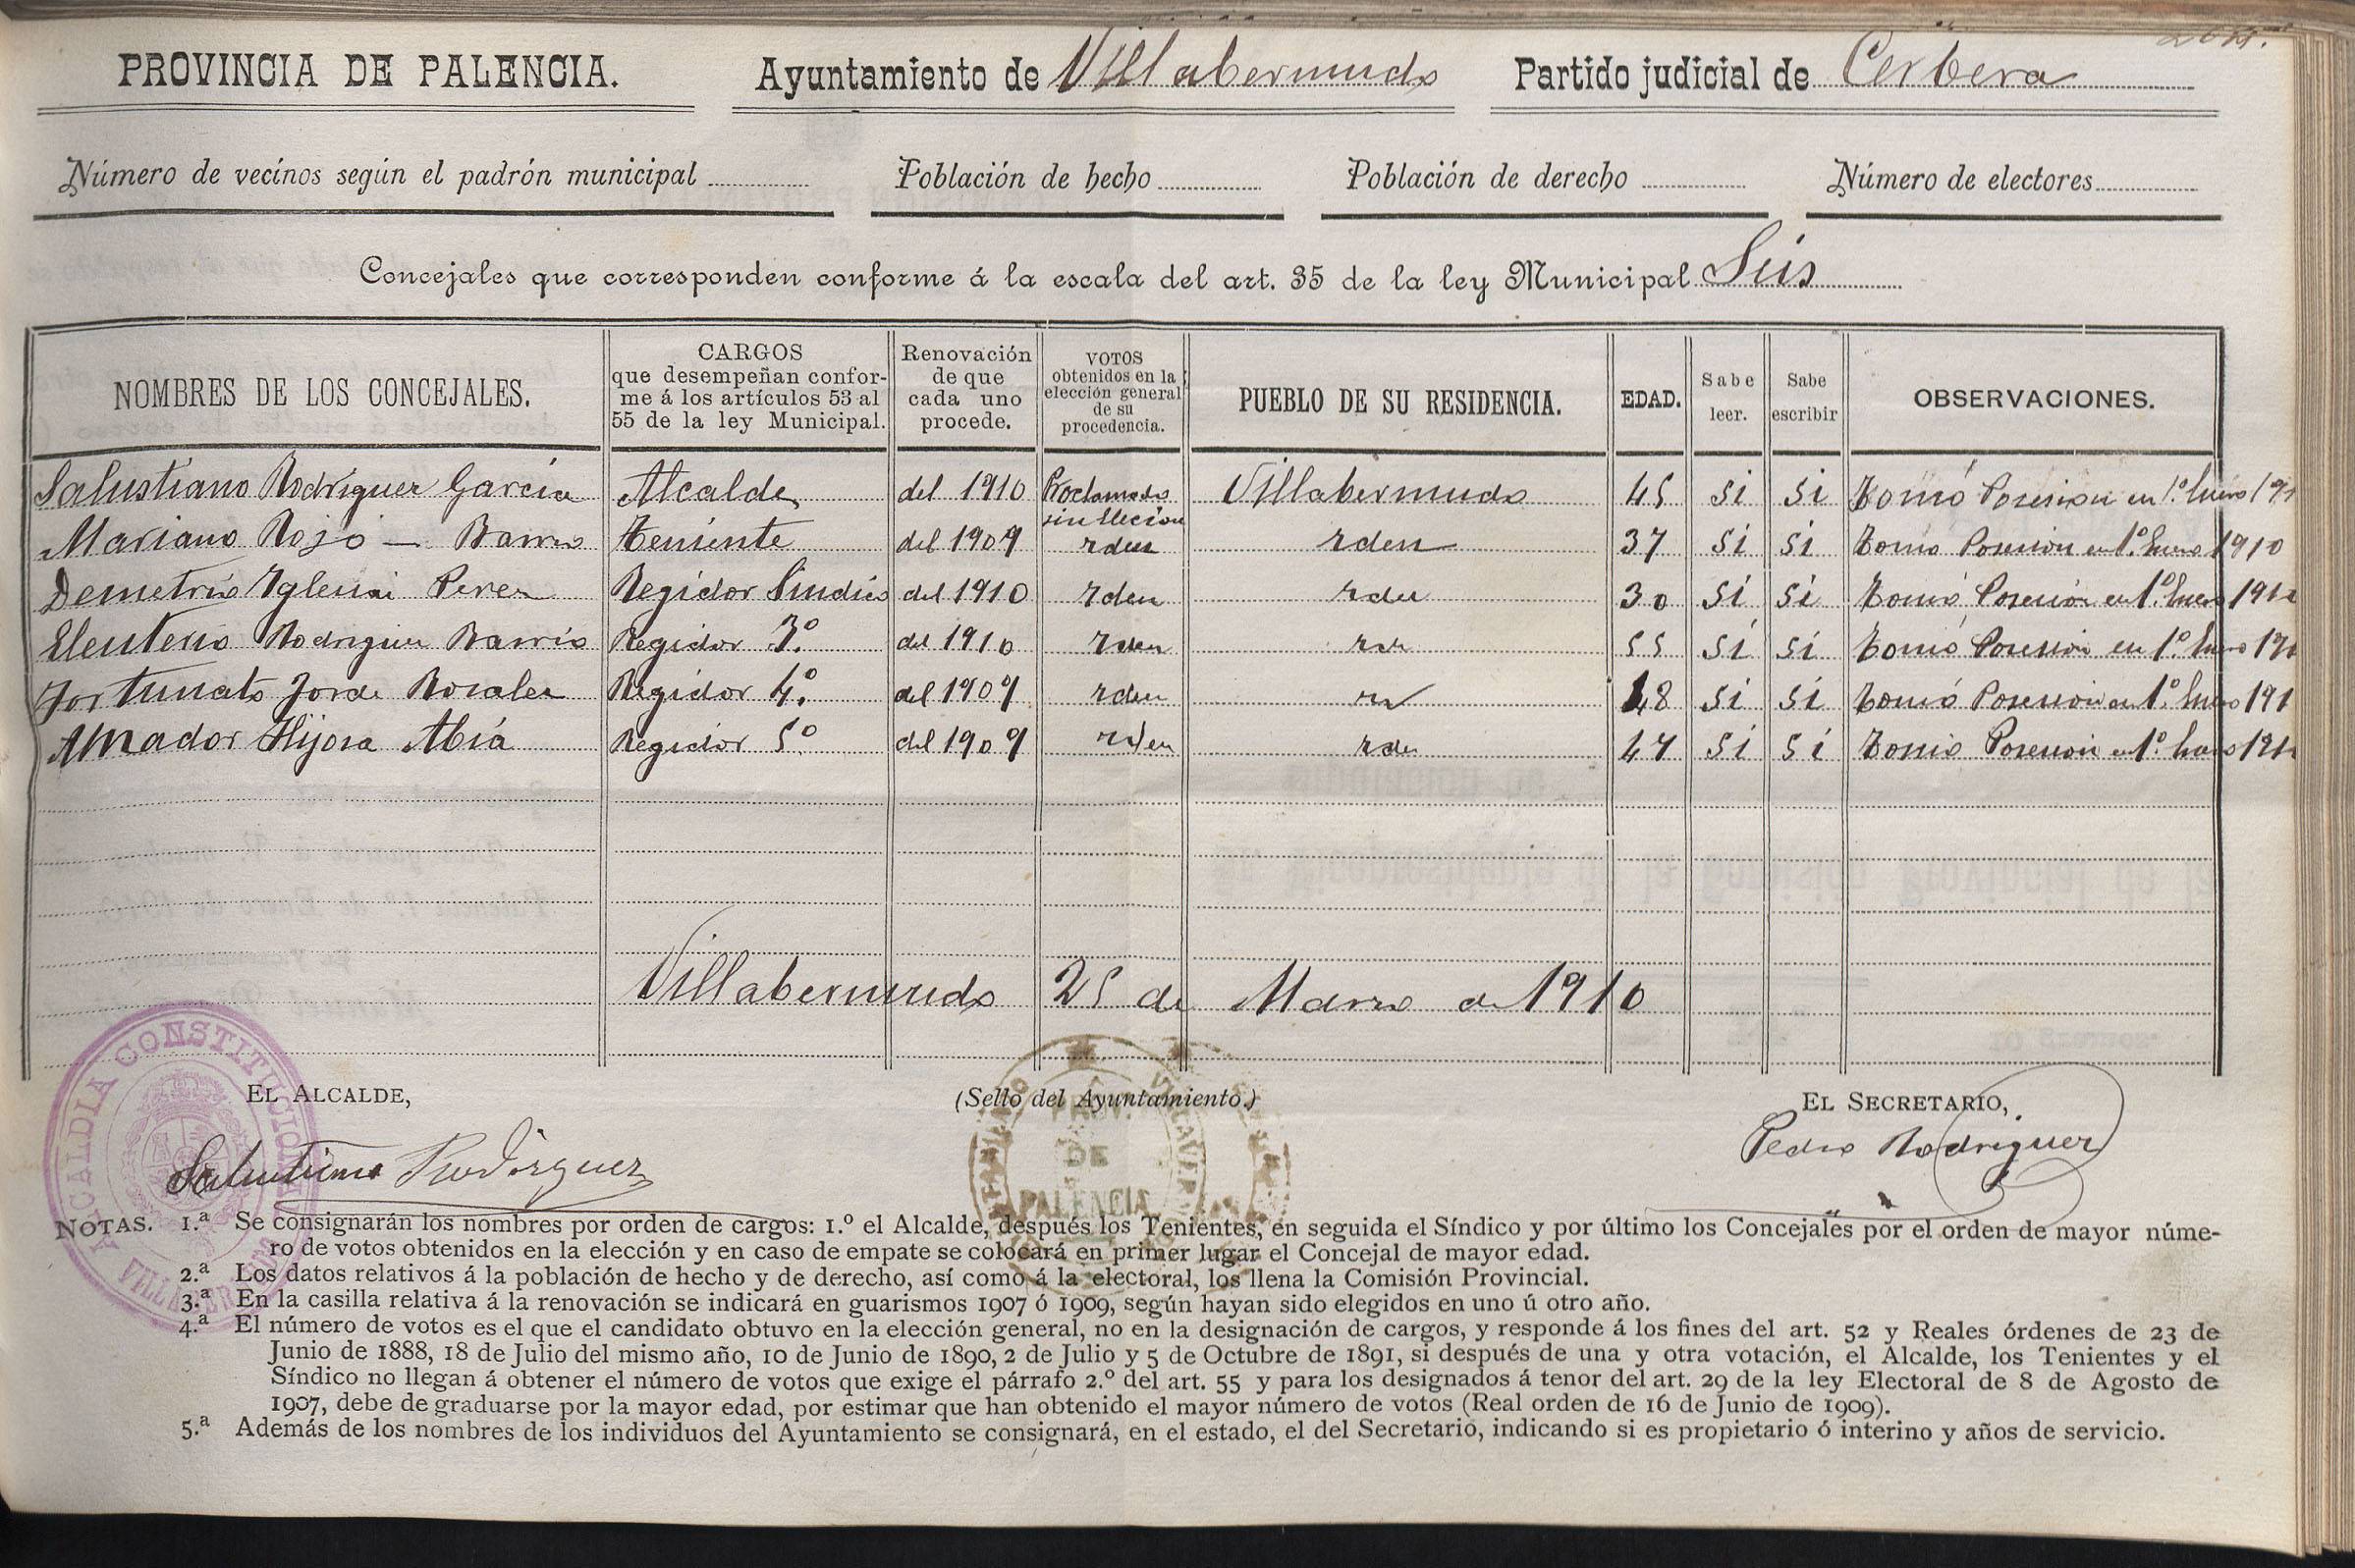 PROVINCIA DE PALENCIA. Ayuntamiento de Villabermudo Partido judicial de Cerbera
Número de vecinos según el padrón municipal Población de hecho Población de derecho Número de electores
Concejales que corresponden conforme á la escala del art. 35 de la ley Municipal Seis
NOMBRES DE LOS CONCEJALES.
CARGOS
que desempeñan confor-
me á los artículos 53 al
55 de la ley Municipal.
Renovación
de que
cada uno
procede.
VOTOS
obtenidos en la
elección general
de su
procedencia.
PUEBLO DE SU RESIDENCIA.
EDAD.
Sabe
leer.
Sabe
escribir
OBSERVACIONES.
Salustiano Rodriguez García Alcalde del 1910 Proclamado sin Elecion Villabermudo 45 si si Tomó Posesion en 1.º Enero 191
Mariano Rojo — Barrio Teniente del 1909 Yden Yden 37 si si Tomó Posesion en 1.º Enero 1910
Demetrio Yglesias Perez Regidor Sindico del 1910 Yden Yden 30 si si Tomó Posesion en 1.º Enero 191
Eleuterio Rodriguez Barrio Regidor 3.º del 1910 Yden Yden 55 si si Tomó Posesion en 1.º Enero 191
Fortunato Jorde Rosales Regidor 4.º del 1909 Yden 48 si si Tomó Posesion en 1.º Enero 191
Amador Hijosa Abiá Regidor 5.º del 1909 Yden Yden 47 si si Tomó Posesion en 1.º Enero 191
Villabermudo 25 de Marzo de 1910
ALCALDIA CONSTITUCIONAL
EL ALCALDE, (Sello del Ayuntamiento.) EL SECRETARIO,
PROV. DE PALENCIA
Salustiano Rodriguez Pedro Rodriguez
NOTAS. 1.ª Se consignarán los nombres por orden de cargos: 1.º el Alcalde, después los Tenientes, en seguida el Síndico y por último los Concejales por el orden de mayor núme-
ro de votos obtenidos en la elección y en caso de empate se colocará en primer lugar el Concejal de mayor edad.
2.ª Los datos relativos á la población de hecho y de derecho, así como á la electoral, los llena la Comisión Provincial.
3.ª En la casilla relativa á la renovación se indicará en guarismos 1907 ó 1909, según hayan sido elegidos en uno ú otro año.
4.ª El número de votos es el que el candidato obtuvo en la elección general, no en la designación de cargos, y responde á los fines del art. 52 y Reales órdenes de 23 de
Junio de 1888, 18 de Julio del mismo año, 10 de Junio de 1890, 2 de Julio y 5 de Octubre de 1891, si después de una y otra votación, el Alcalde, los Tenientes y el
Síndico no llegan á obtener el número de votos que exige el párrafo 2.º del art. 55 y para los designados á tenor del art. 29 de la ley Electoral de 8 de Agosto de
1907, debe de graduarse por la mayor edad, por estimar que han obtenido el mayor número de votos (Real orden de 16 de Junio de 1909).
5.ª Además de los nombres de los individuos del Ayuntamiento se consignará, en el estado, el del Secretario, indicando si es propietario ó interino y años de servicio.